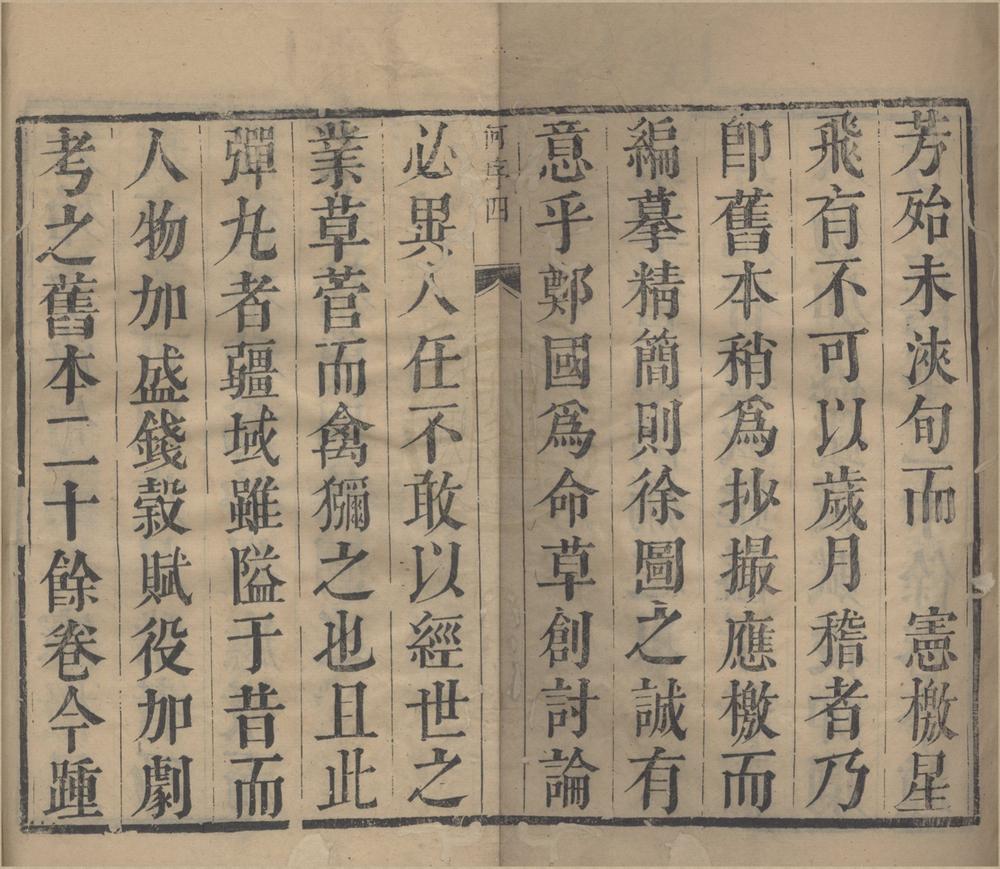 芳殆未浹旬而　憲檄星
飛有不可以歲月稽者乃
卽舊本稍爲抄撮應檄而
編摹精簡則徐圖之誠有
意乎鄭國爲命草創討論
何序四
必異人任不敢以經世之
業草菅而禽獮之也且此
彈丸者疆域雖隘于昔而
人物加盛錢穀賦役加劇
考之舊本二十餘卷今踵